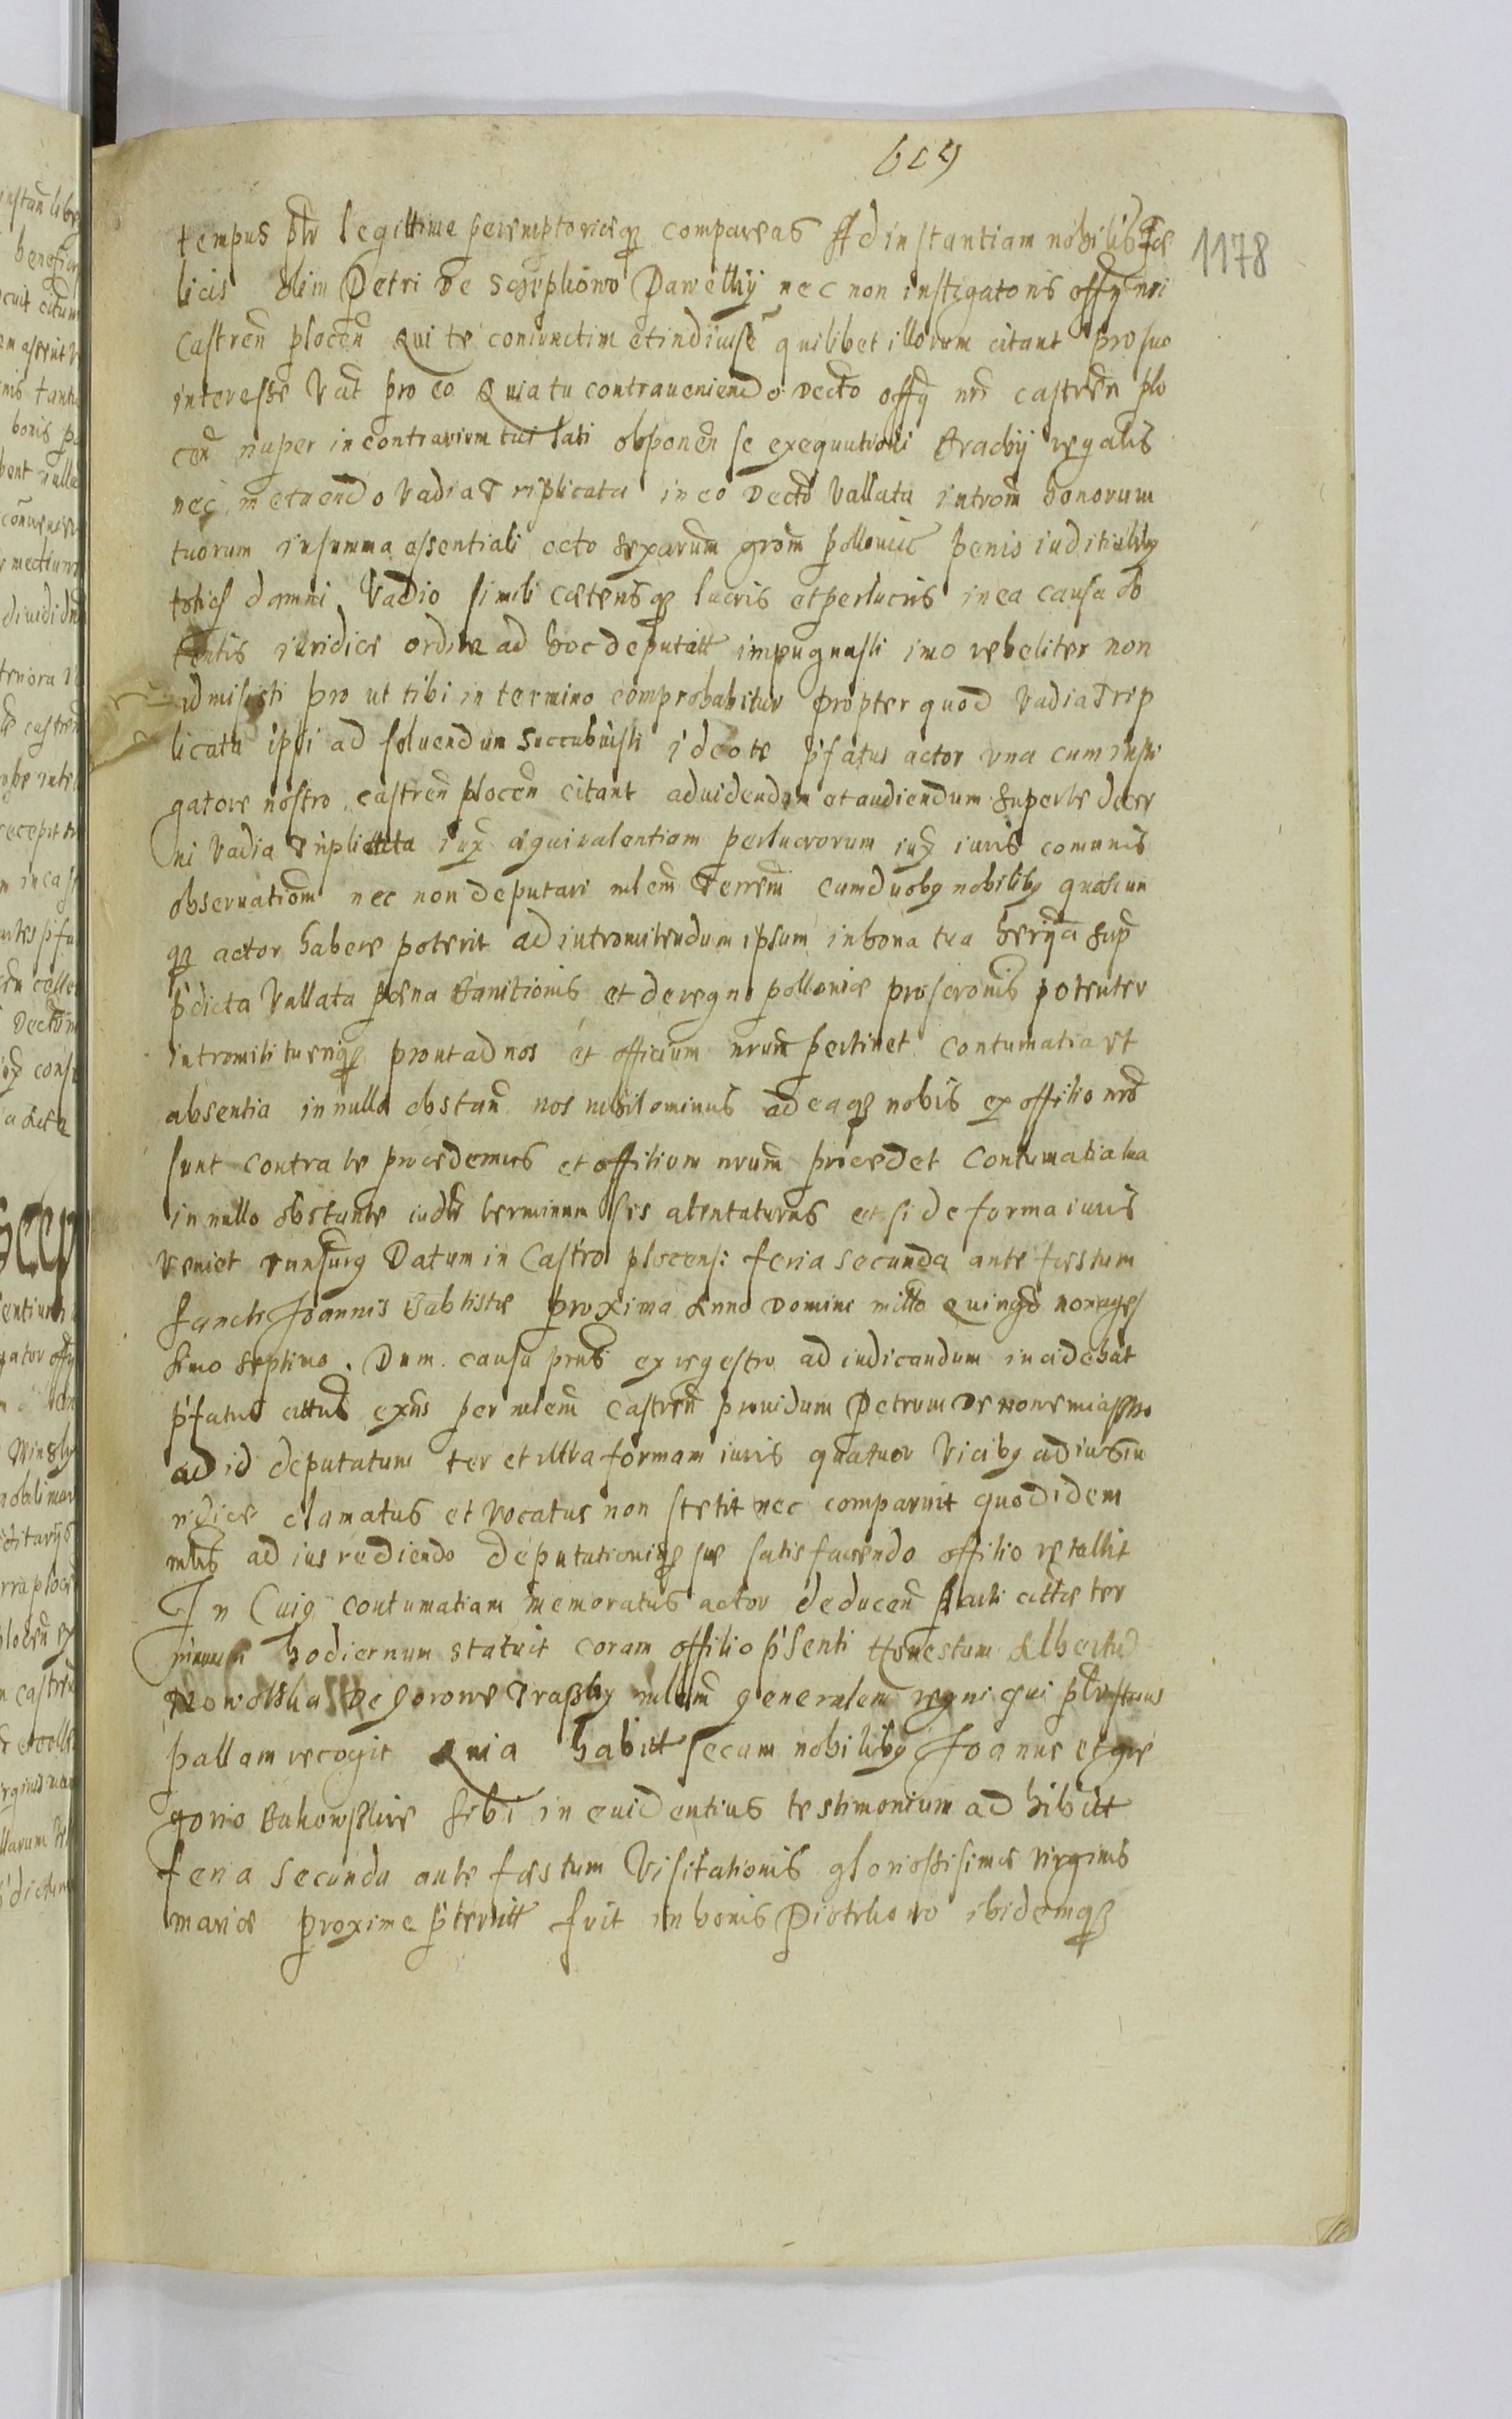 609
1178
tempus ptr legittime peremptorieqȝ compareas Ad instantiam nobilis Fæ
licis olim Petri de Scyrpkowo Pawelkij nec non instigatoris offy nri
Castren plocen Qui te coniunctim et indiuise quilibet illorum citant pro suo
interesse Vat pro eo Quia tu contraueniendo decto offy nri castren plo
cen nuper in contrarium tui lati obponen se exequutioni Brachij regalis
nec metuendo Vadia Triplicata in eo decto Vallata introm bonorum
tuorum in summa essentiali octo sexarum grom polloniæ penis iuditialiby
toties damni Vadio simili cæterisqȝ lucris et perlucris in ea causa ob
tentis iuridice ordine ad hoc deputatt impugnasti imo rebeliter non
admisisti pro ut tibi in termino comprobabitur propter quod Vadia Trip
licata ipsi ad soluendum Succubuisti ideo te pfatus actor vna cum insti
gatore nostro castren plocen citant ad uidendum et audiendum super te decer
ni Vadia Triplicata iux æquiualentiam perlucrorum iux iuris comunis
obseruatiom nec non deputari mlem Terrem cum duoby nobiliby quoscun
qȝ actor habere poterit ad intromitendum ipsum in bona tua herija sup
pdicta Vallata pæna Banitionis et de regno polloniæ proscronis potenter
intromiti tueriqȝ prout ad nos et officium nrum pertinet contumatia et
absentia in nullo obstan nos nihilominus ad ea qȝ nobis ex offitio nro
sunt contra te procedemus et offitium nrum procedet Contumatia tua
in nullo obstante iudr terminum sis atentaturus et si de forma iuris
veniet runsurg Datum in Castro plocensi feria secunda ante festum
sancti Joannis Babtistæ proxima Anno Domini millo Quingo nonages
simo septimo. Dum causa pnts ex regestro ad iudicandum incidebat
pfatus cittus exns per mlem castren prouidum Petrum de
ad id deputatum ter et ultra formam iuris quatuor Viciby ad ius iu
ridice clamatus et vocatus non stetit nec comparuit quod idem
mlis ad ius rediendo deputationiqȝ suæ satisfaciendo offitio retullit
In Cuig contumatiam memoratus actor deducen facti cittæ ter
minum hodiernum statuit coram offitio psenti Honestum Albertu
de Gorowe Traßky mlem generalem regni qui
pallam recogit Quia habitt secum nobiliby Joanne et gre
gorio Bukowskie sibi in euidentius testimonium adhibitt
feria secunda ante fæstum Visitationis gloriossisimæ virginis
mariæ proxime pteritt fuit in bonis Piotrkowo ibidemqȝ